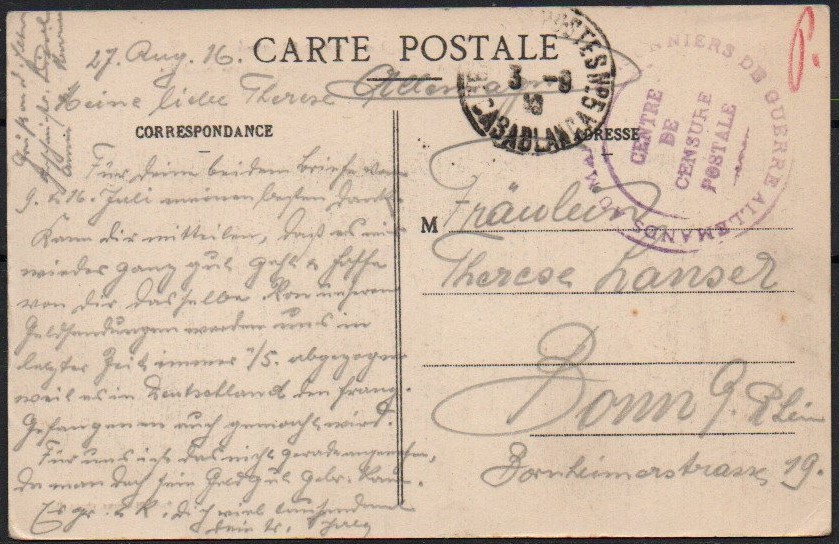 27. Aug. 16.
CARTE POSTALE
Allemagne
Meine liebe Therese
CORRESPONDANCE
ADRESSE
POSTES N° 5
3 - 9
16
CASABLANCA
PRISONNIERS DE GUERRE ALLEMANDS AU MAROC
CENTRE
DE
CENSURE
POSTALE
Für deine beiden Briefe vom
9. & 16. Juli meinen besten Dank.
Kann dir mitteilen, daß es mir
wieder ganz gut geht & hoffe
von dir dasselbe. Von unseren
Geldsendungen werden uns in
letzter Zeit immer 1/5. abgezogen
weil es in Deutschland den franz.
Gefangenen auch gemacht wird.
Für uns ist das nicht gerade angenehm,
da man doch sein Geld gut gebr. kann.
Es gr. & k. dich viel tausendmal
dein tr.
M Fräulein
Therese Lanser
Bonn a. Rhein
Bornheimerstrasse 19.